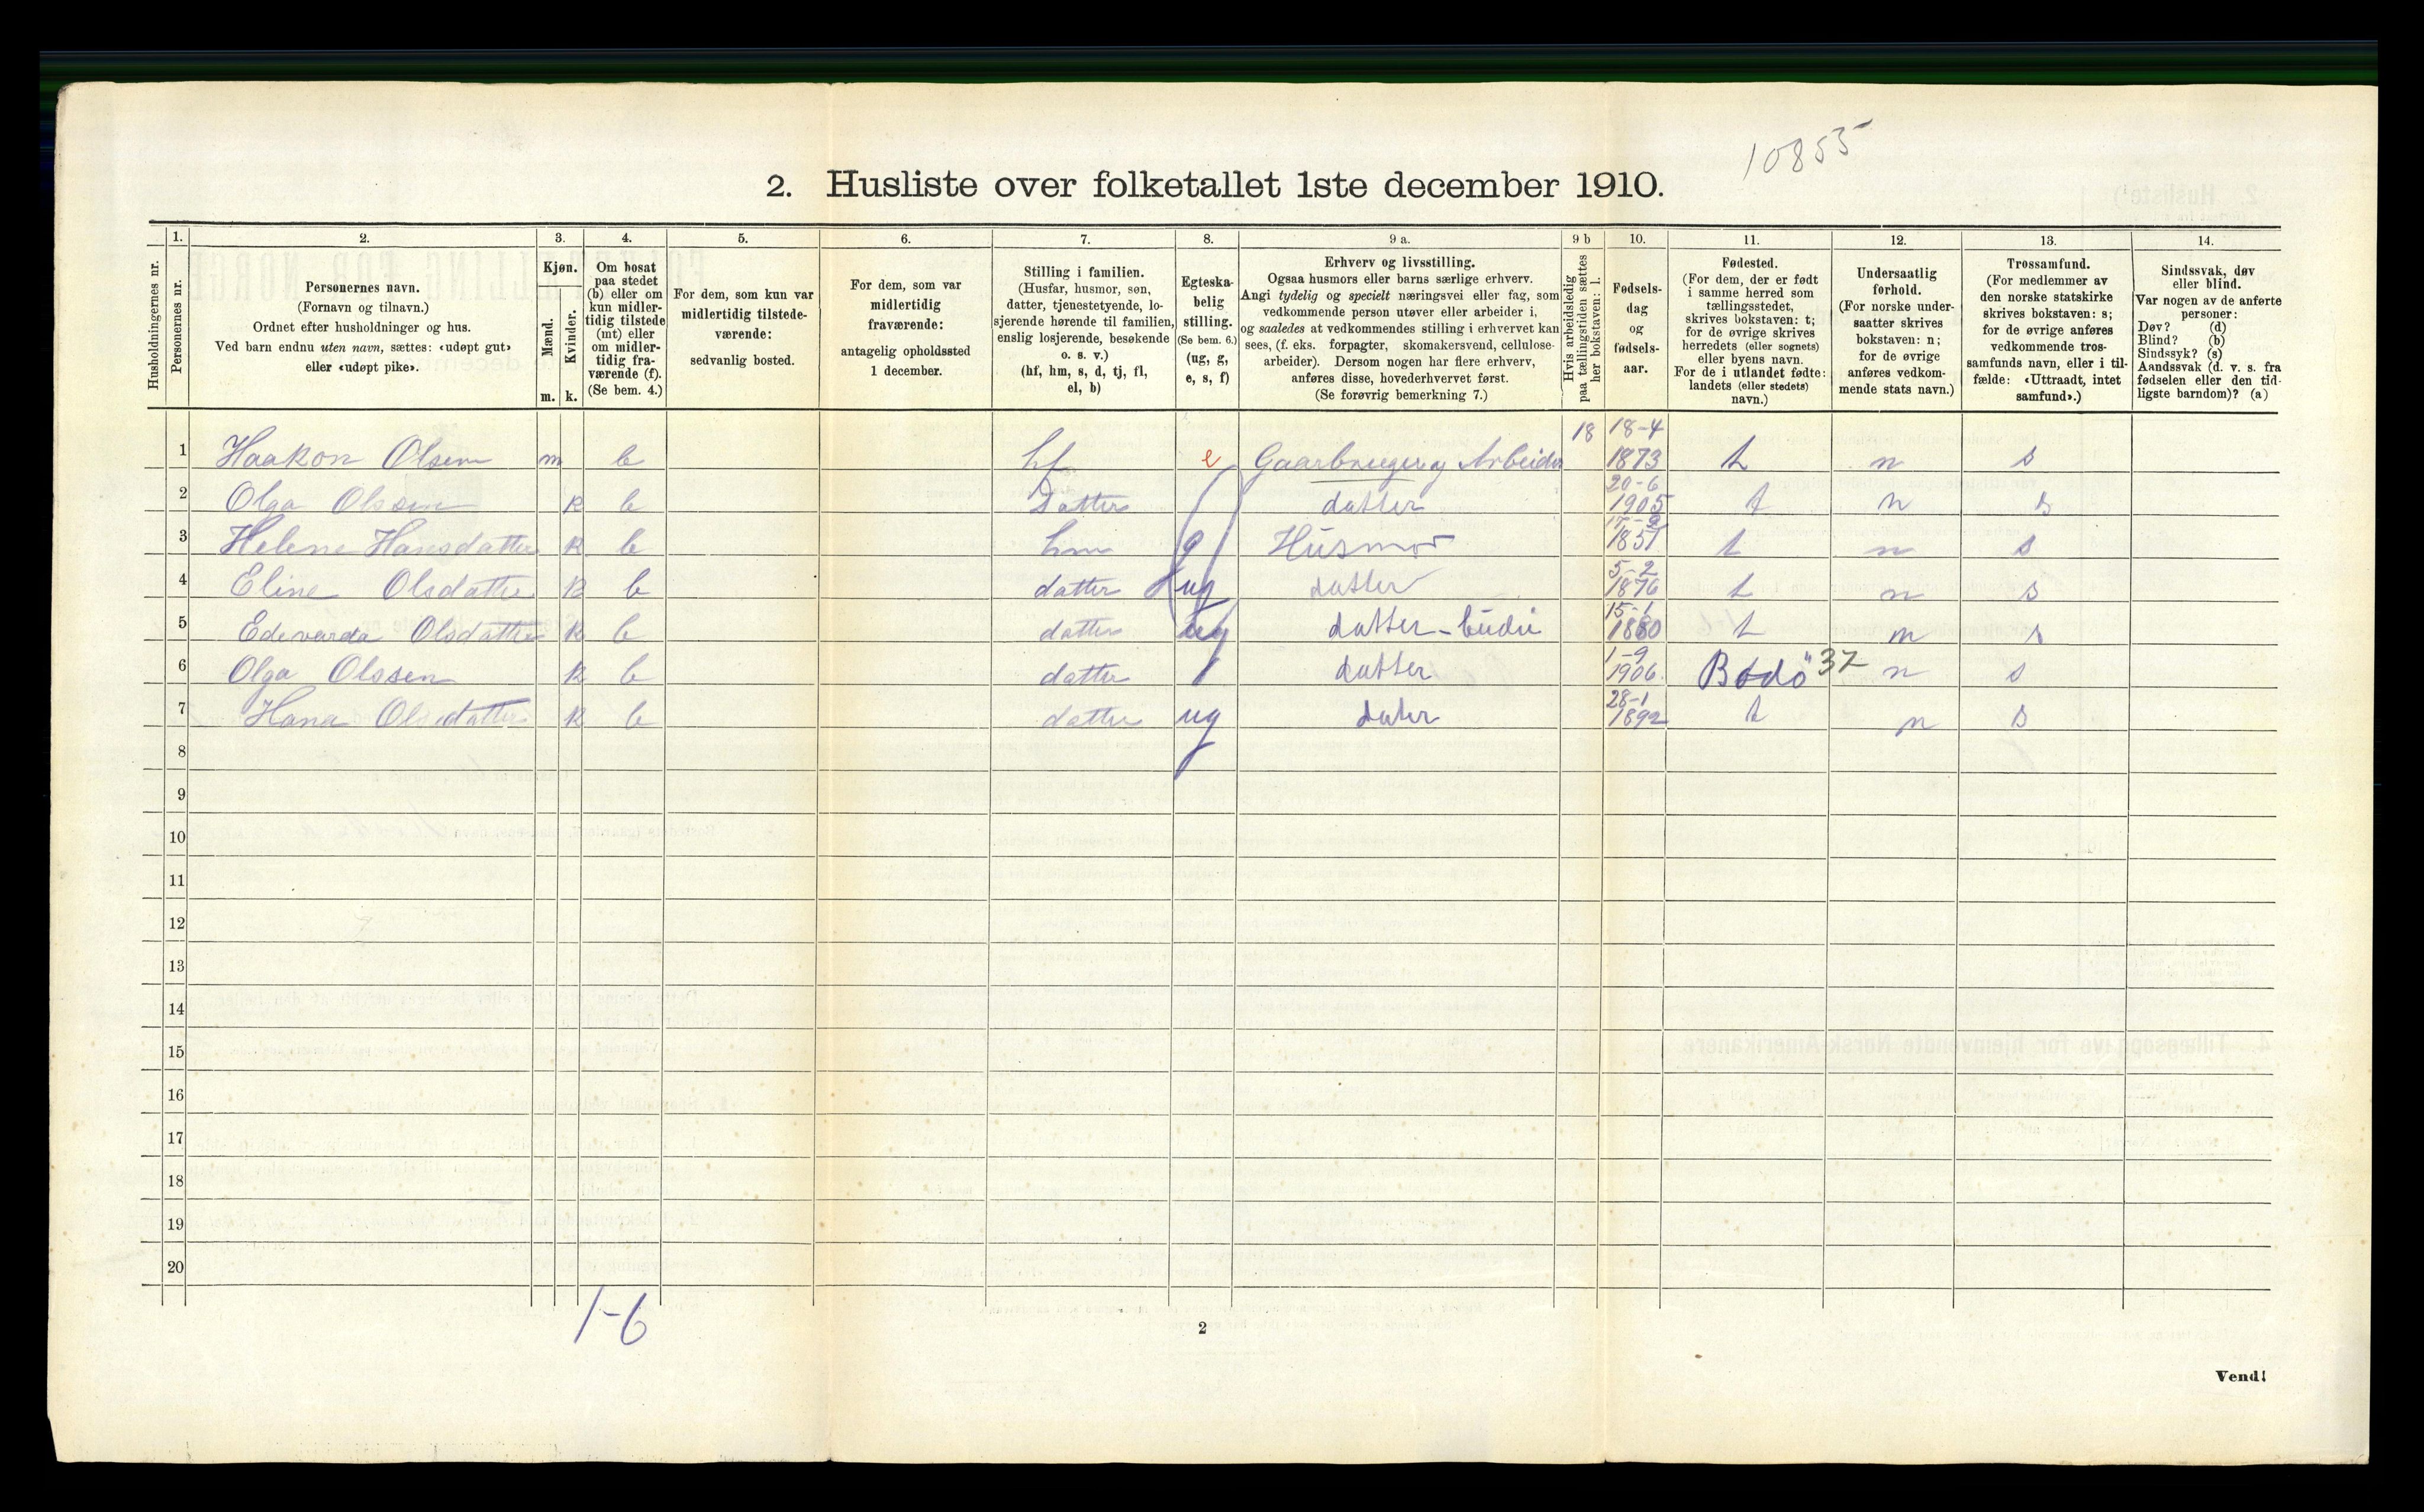 10855
2. Husliste over folketallet 1ste december 1910.
Husholdningernes nr.
1.
Personernes nr.
2.
Personernes navn.
(Fornavn og tilnavn.)
Ordnet efter husholdninger og hus.
Ved barn endnu uten navn, sættes: «udøpt gut»
eller «udøpt pike».
3.
Kjøn.
Mænd.
Kvinder.
m. k.
4.
Om bosat
paa stedet
(b) eller om
kun midler-
tidig tilstede
(mt) eller
om midler-
tidig fra-
værende (f).
(Se bem. 4.)
5.
For dem, som kun var
midlertidig tilstede-
værende:
sedvanlig bosted.
6.
For dem, som var
midlertidig
fraværende:
antagelig opholdssted
1 december.
7.
Stilling i familien.
(Husfar, husmor, søn,
datter, tjenestetyende, lo-
sjerende hørende til familien,
enslig losjerende, besøkende
o. s. v.)
(hf, hm, s, d, tj, fl,
el, b)
8.
Egteska-
belig
stilling.
(Se bem. 6.)
(ug, g,
e, s, f)
9 a.
Erhverv og livsstilling.
Ogsaa husmors eller barns særlige erhverv.
Angi tydelig og specielt næringsvei eller fag, som
vedkommende person utøver eller arbeider i,
og saaledes at vedkommendes stilling i erhvervet kan
sees, (f. eks. forpagter, skomakersvend, cellulose-
arbeider). Dersom nogen har flere erhverv,
anføres disse, hovederhvervet først.
(Se forøvrig bemerkning 7.)
9 b
Hvis arbeidsledig
paa tællingstiden sættes
her bokstaven: l.
10.
Fødsels-
dag
og
fødsels-
aar.
11.
Fødested.
(For dem, der er født
i samme herred som
tællingsstedet,
skrives bokstaven: t;
for de øvrige skrives
herredets (eller sognets)
eller byens navn.
For de i utlandet fødte:
landets (eller stedets)
navn.)
12.
Undersaatlig
forhold.
(For norske under-
saatter skrives
bokstaven: n;
for de øvrige
anføres vedkom-
mende stats navn.)
13.
Trossamfund.
(For medlemmer av
den norske statskirke
skrives bokstaven: s;
for de øvrige anføres
vedkommende tros-
samfunds navn, eller i til-
fælde: «Uttraadt, intet
samfund».)
14.
Sindssvak, døv
eller blind.
Var nogen av de anførte
personer:
Døv? (d)
Blind? (b)
Sindssyk? (s)
Aandssvak (d. v. s. fra
fødselen eller den tid-
ligste barndom)? (a)
1 Haakon Olsen m b hf e Gaarbruger og Arbeider 18 18-4 1873 t n s
2 Olga Olssen k b Datter datter 20-6 1905 t n s
3 Helene Hansdatter k b hm g Husmor 1851 t n s
4 Eline Olsdatter k b datter ug datter 5-2 1876 t n s
5 Edevarda Olsdatter k b datter ug datter - budei 15-1 1880 t n s
6 Olga Olssen k b datter datter 1-9 1906 Bodö 37 n s
7 Hana Olsdatter k b datter ug dater 28-1 1892 t n s
8
9
10
11
12
13
14
15
16
17
18
19
20
1-6
2
Vend!